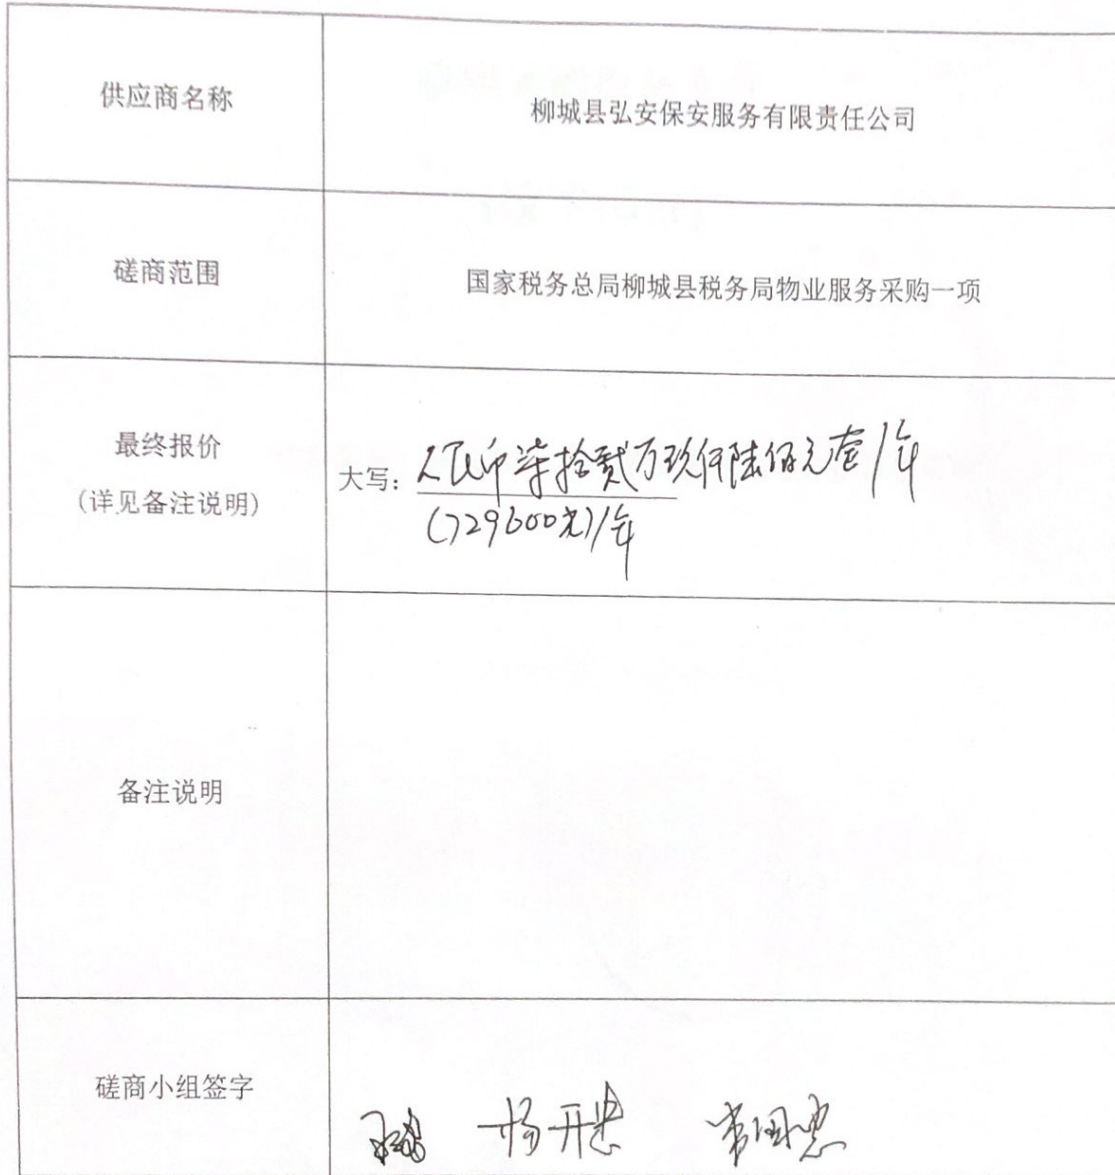 供应商名称
柳城县弘安保安服务有限责任公司
磋商范围
国家税务总局柳城县税务局物业服务采购一项
最终报价
(详见备注说明)
大写：人民币柒拾贰万玖仟陆佰元整/年
(729600元)/年
备注说明
磋商小组签字
杨开忠